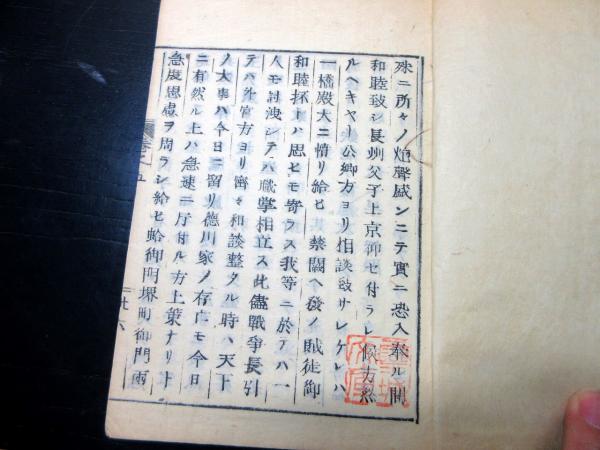 殊ニ所々ノ炮聲盛ンニテ實ニ恐入奉ル間
和睦致シ長州父子上京御セ付ラレ候方然
ルヘキヤト公卿方ヨリ相談致サレケレハ
一橋殿大ニ憤リ給ヒ禁闕ヘ發ノ賊徒御
和睦抔トハ思ヒモ寄ラス我等ニ於テハ一
人モ討洩シテハ職掌相立ス此儘戰爭長引
テハ外官方ヨリ和談整タル時ハ天下
ノ大事ハ今日ニ留リ德川家ノ存亡モ今日
ニ有然ル上ハ急速ニ片付ル方上策ナリト
急度思慮ヲ周ラシ給ヒ蛤御門堺町御門兩
五
廿六